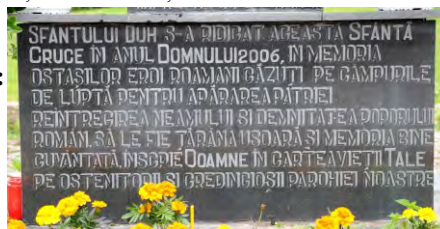 SFANTULUI DUH S-A RIDICAT ACEASTA SFÂNTĂ
CRUCE ÎN ANUL DOMNULUI 2006, IN MEMORIA
OSTAȘILOR EROI ROAMANI CĂZUȚI PE CÂMPURILE
DE LUPTĂ PENTRU APĂRAREA PATRIEI
REINTREGIREA NEAMULUI SI DEMNITATEA POPORULUI
ROMÂN. SĂ LE FIE ȚĂRÂNA USOARĂ SI MEMORIA BINE
CUVÂNTATĂ. ÎNSCRIE DOAMNE ÎN CARTEA VIEȚII TALE
PE OSTENITORII SI CREDINCIOȘII PAROHIEI NOASTRE